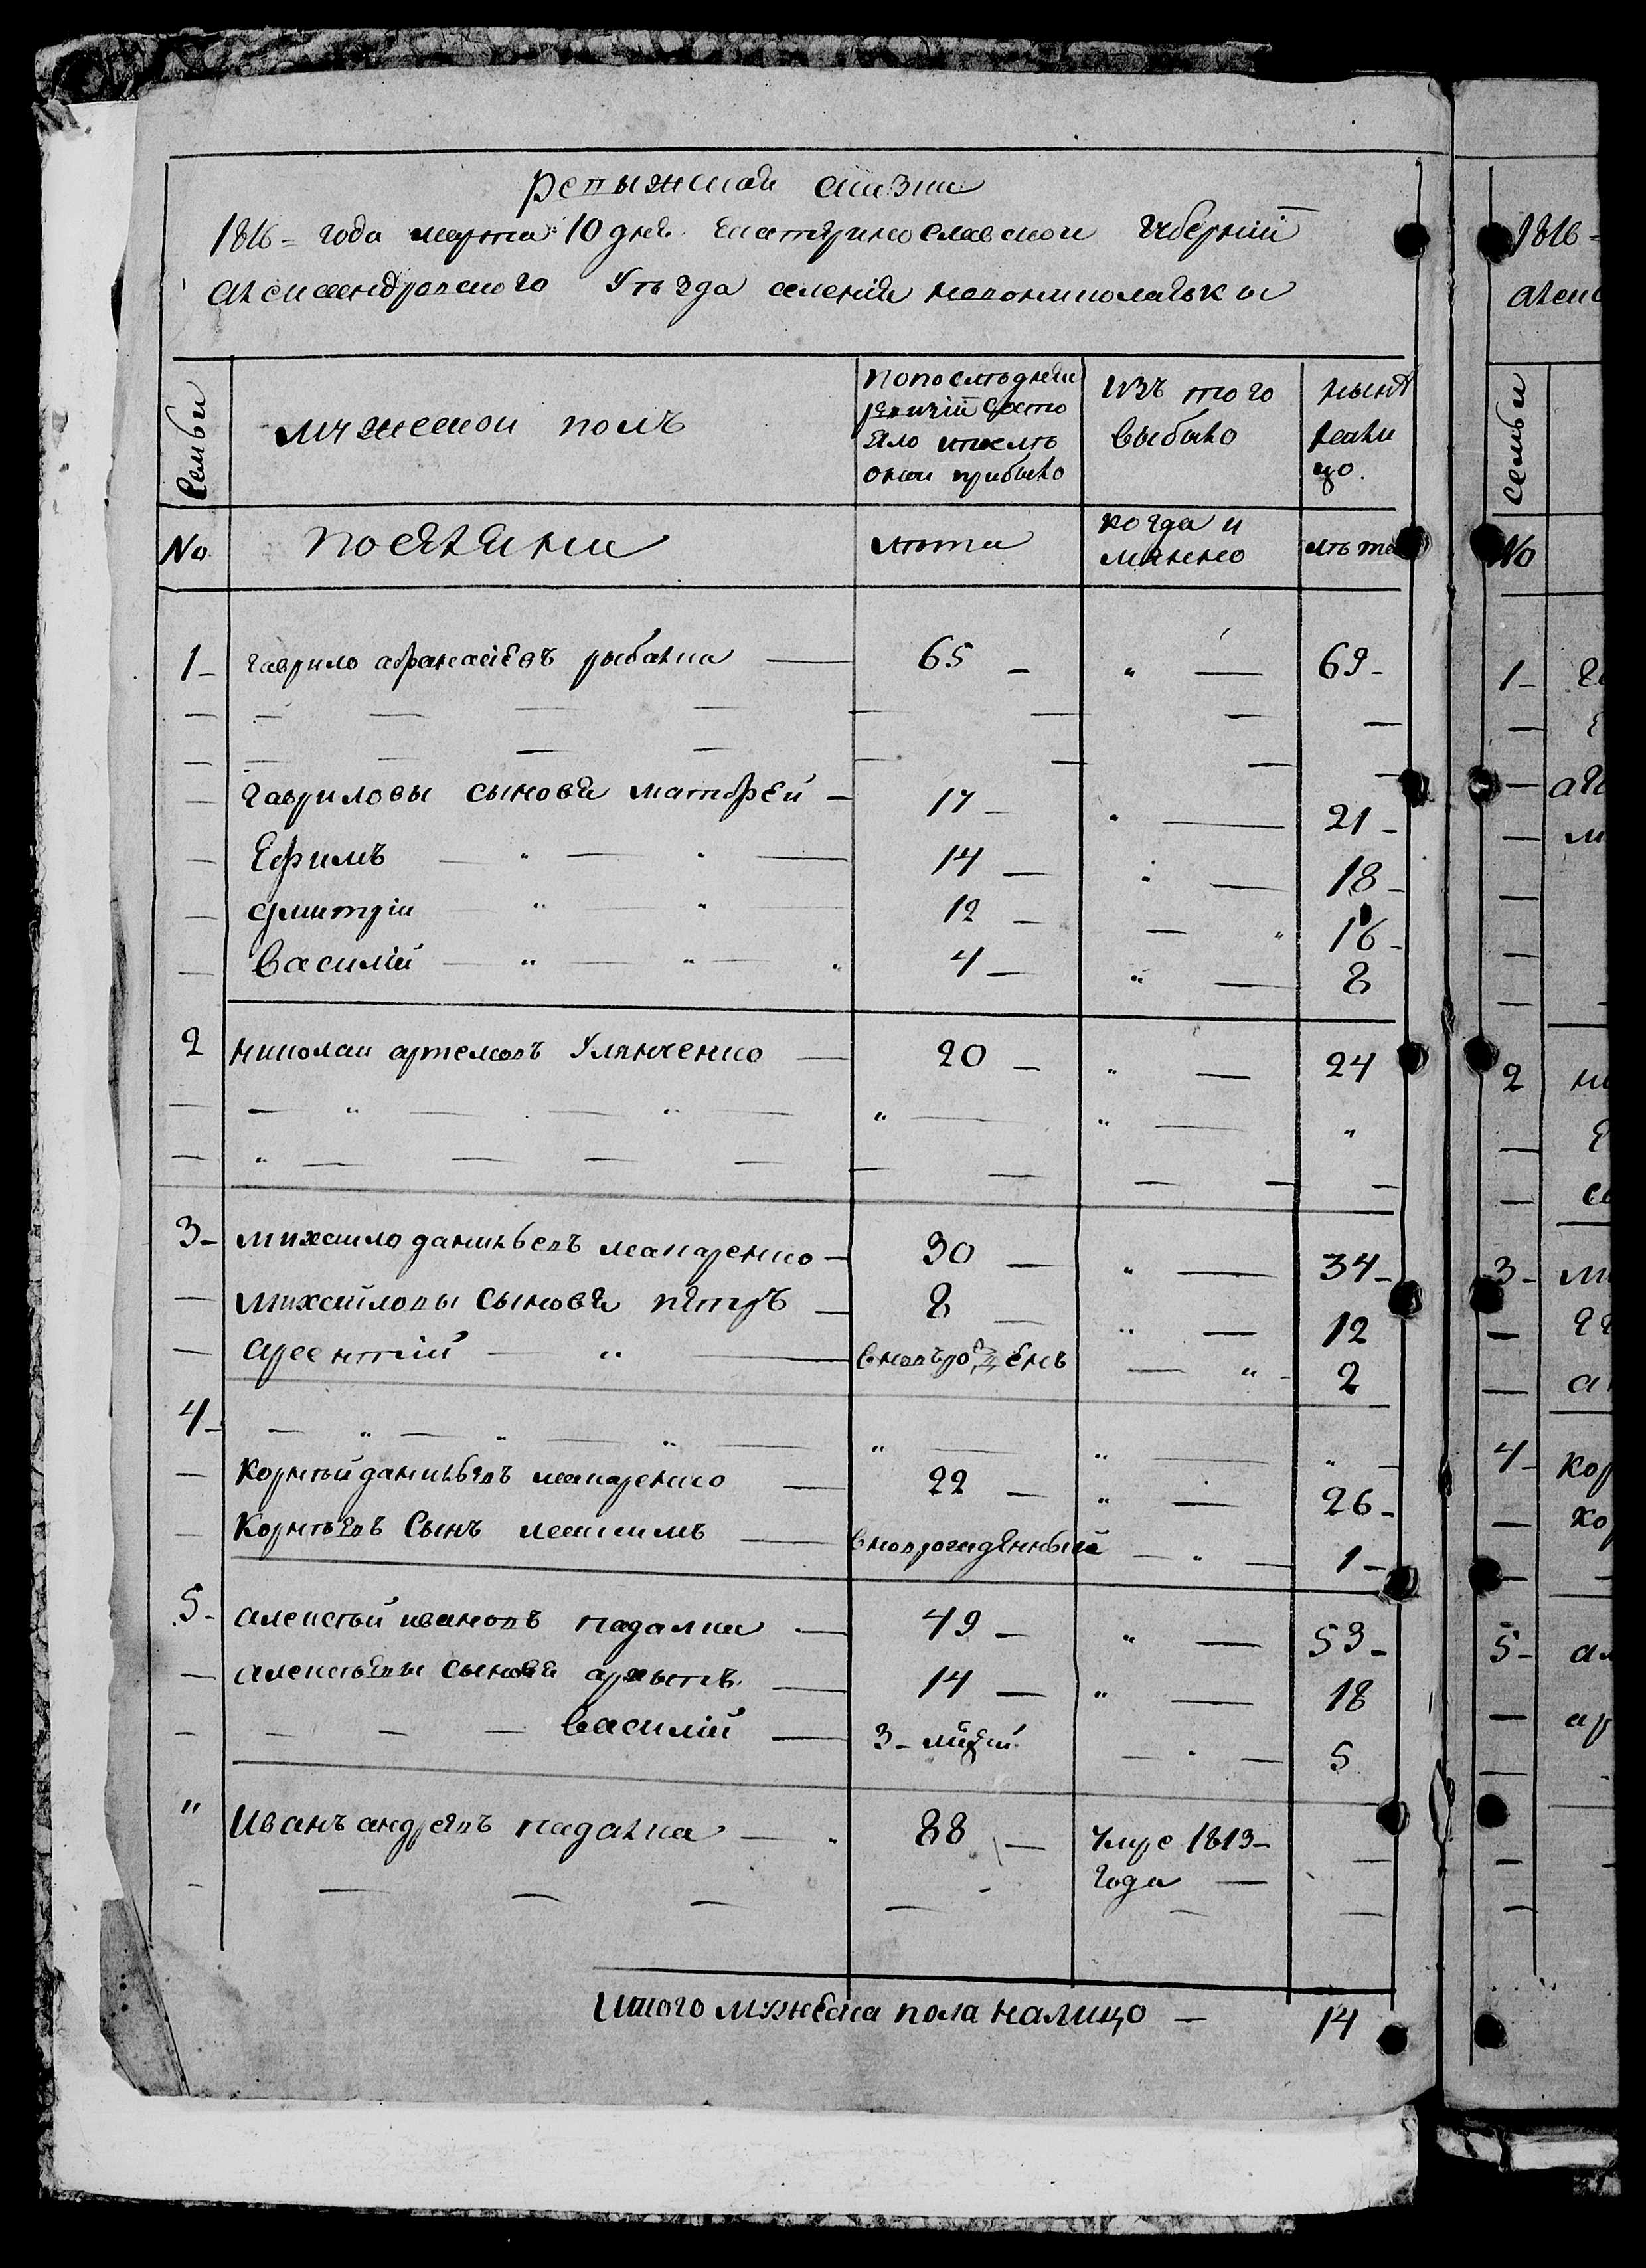 Ревыжская скаска
1816= года марта 10 дня Екатеринославской губерніи
александровского Уѣзда селенія новониколаевки
Семьи
мужескои полъ
попослѣдней
ревизіи состо
яло ипослѣ
онои прибыло
изъ того
выбыло
нынѣ
нали
цо.
№
поселяни
лѣта
когда и
мянно
лѣта
1- гаврило афанасіевъ рыбалка — 65 - „ — 69-
гавриловы сыновя матфей - 17- „ — 21-
Ефимъ — „ — „ — 14 — „ — 18-
дмитріи — „ — „ — 12 — — „ 16-
василій — „ — „ — „ 4 — „ — 8
2 николаи артемовъ Улянченко — 20 — „ — 24
3- михаило данильевъ макаренко — 30 — „ — 34-
михайловы сыновя петръ — 8 — „ — 12
арсентій — „ — вновърожденъ — „ - 2
4-
корнѣй данильевъ макаренко — 22 — „ — 26-
корнѣевъ сынъ максимъ — вноврожденный — „ — 1-
5- алексѣй ивановъ падалка — 49 — „ — 53-
алексѣевы сыновя архыпъ — 14 — „ — 18
василій — 3- — „ — 5
„ Иванъ андреевъ падалка — „ 88 — Умре 1813-
года —
Итого мужеска пола налицо — 14
1816-
семьи
№
1-
2
3-
4-
5-